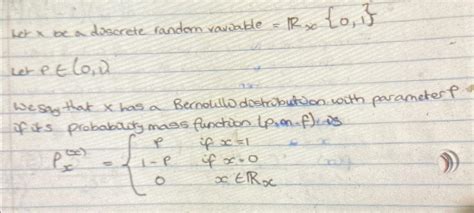 Let x be a discrete random variable = ℝx {0,1}
Let P ∈ (0,1)
We say that x has a Bernolillo distribution with parameter P
if its probability mass function (p.m.f) is
Px(x) = { P if x=1
1-P if x=0
0 x ∈ ℝx